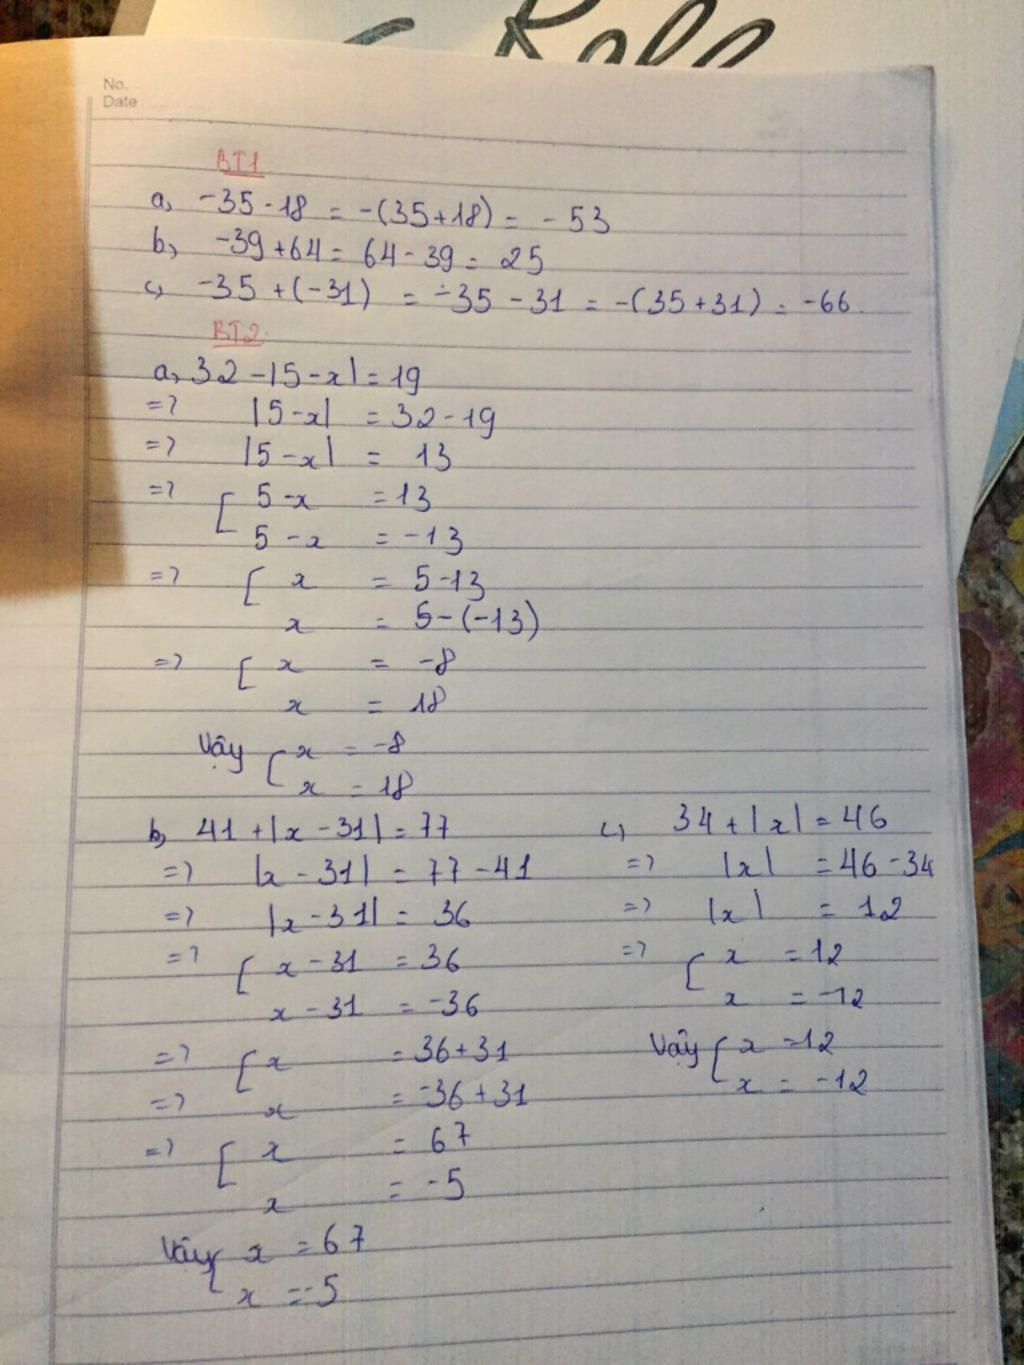 No.
Date
BT1
a, -35-18 = -(35+18) = -53
b, -39+64 = 64-39 = 25
c, -35+(-31) = -35-31 = -(35+31) = -66.
BT2
a, 32-|5-x| = 19
=> |5-x| = 32-19
=> |5-x| = 13
=> [ 5-x = 13
5-x = -13
=> [ x = 5-13
x = 5-(-13)
=> [ x = -8
x = 18
Vậy [ x = -8
x = 18
b, 41+|x-31| = 77
=> |x-31| = 77-41
=> |x-31| = 36
=> [ x-31 = 36
x-31 = -36
=> [ x = 36+31
=> x = -36+31
=> [ x = 67
x = -5
Vậy [ x = 67
x = -5
c, 34+|x| = 46
=> |x| = 46-34
=> |x| = 12
=> [ x = 12
x = -12
Vậy [ x = 12
x = -12